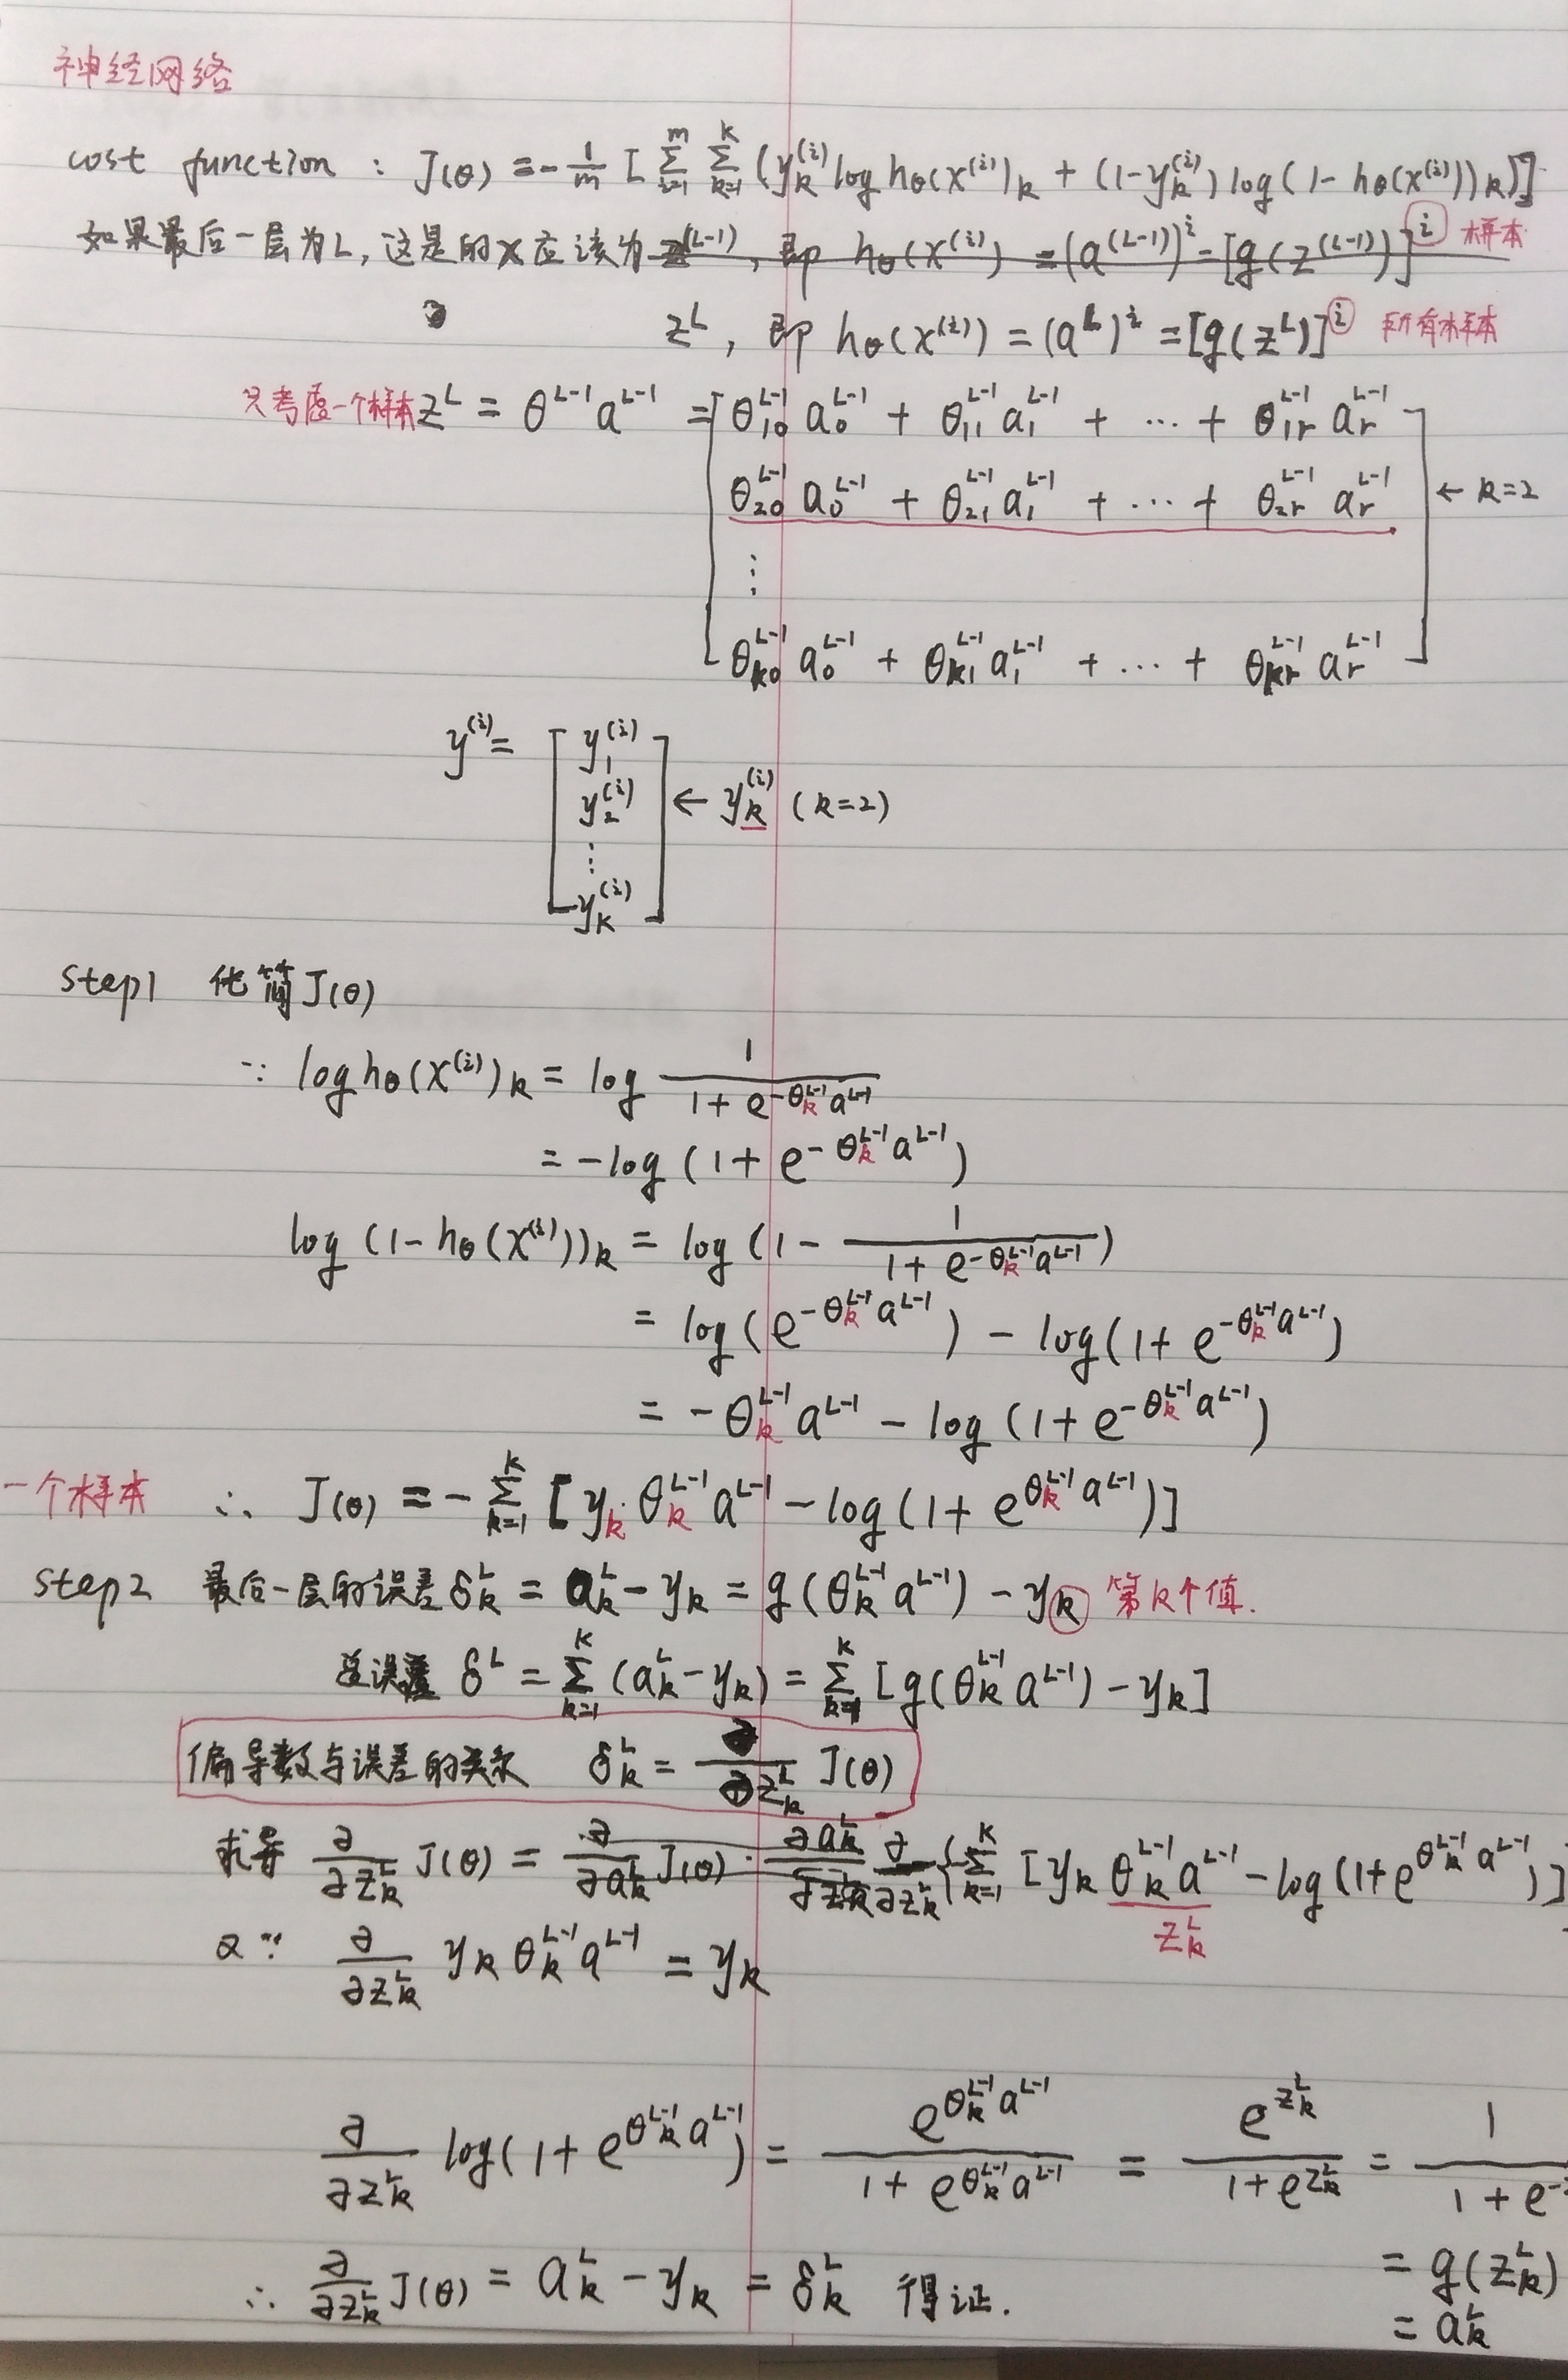 神经网络
cost function : J(θ) = -1/m [ Σ_{i=1}^{m} Σ_{k=1}^{K} (y_k^{(i)} log hθ(x^{(i)})_k + (1-y_k^{(i)}) log(1-hθ(x^{(i)}))_k)]
如果最后一层为L, 这是的x应该为 z^{(L-1)}, 即 hθ(x^{(i)}) = (a^{(L-1)})^i = [g(z^{(L-1)})]^i 样本
z^L, 即 hθ(x^{(i)}) = (a^L)^i = [g(z^L)]^i 所有样本
只考虑一个样本 z^L = θ^{L-1} a^{L-1} = [ θ_{10}^{L-1} a_0^{L-1} + θ_{11}^{L-1} a_1^{L-1} + ⋯ + θ_{1r}^{L-1} a_r^{L-1}
θ_{20}^{L-1} a_0^{L-1} + θ_{21}^{L-1} a_1^{L-1} + ⋯ + θ_{2r}^{L-1} a_r^{L-1} ← k=2
⋮
θ_{k0}^{L-1} a_0^{L-1} + θ_{k1}^{L-1} a_1^{L-1} + ⋯ + θ_{kr}^{L-1} a_r^{L-1} ]
y^{(i)} = [ y_1^{(i)}
y_2^{(i)} ← y_k^{(i)} (k=2)
⋮
y_K^{(i)} ]
step1 化简J(θ)
∵ log hθ(x^{(i)})_k = log 1/(1+e^{-θ_k^{L-1} a^{L-1}})
= -log(1+e^{-θ_k^{L-1} a^{L-1}})
log(1-hθ(x^{(i)}))_k = log(1 - 1/(1+e^{-θ_k^{L-1} a^{L-1}}))
= log(e^{-θ_k^{L-1} a^{L-1}}) - log(1+e^{-θ_k^{L-1} a^{L-1}})
= -θ_k^{L-1} a^{L-1} - log(1+e^{-θ_k^{L-1} a^{L-1}})
一个样本 ∴ J(θ) = -Σ_{k=1}^{K} [y_k θ_k^{L-1} a^{L-1} - log(1+e^{θ_k^{L-1} a^{L-1}})]
step2 最后一层的误差 δ_k^L = a_k^L - y_k = g(θ_k^{L-1} a^{L-1}) - y_k 第k个值.
总误差 δ^L = Σ_{k=1}^{K} (a_k^L - y_k) = Σ_{k=1}^{K} [g(θ_k^{L-1} a^{L-1}) - y_k]
偏导数与误差的关系 δ_k^L = ∂/∂z_k^L J(θ)
求导 ∂/∂z_k^L J(θ) = ∂/∂a_k^L J(θ) · ∂a_k^L/∂z_k^L ∂/∂z_k^L {-Σ_{k=1}^{K} [y_k θ_k^{L-1} a^{L-1} - log(1+e^{θ_k^{L-1} a^{L-1}})]
z_k^L
∵ ∂/∂z_k^L y_k θ_k^{L-1} a^{L-1} = y_k
∂/∂z_k^L log(1+e^{θ_k^{L-1} a^{L-1}}) = e^{θ_k^{L-1} a^{L-1}}/(1+e^{θ_k^{L-1} a^{L-1}}) = e^{z_k^L}/(1+e^{z_k^L}) = 1/(1+e^-
= g(z_k^L)
= a_k^L
∴ ∂/∂z_k^L J(θ) = a_k^L - y_k = δ_k^L 得证.